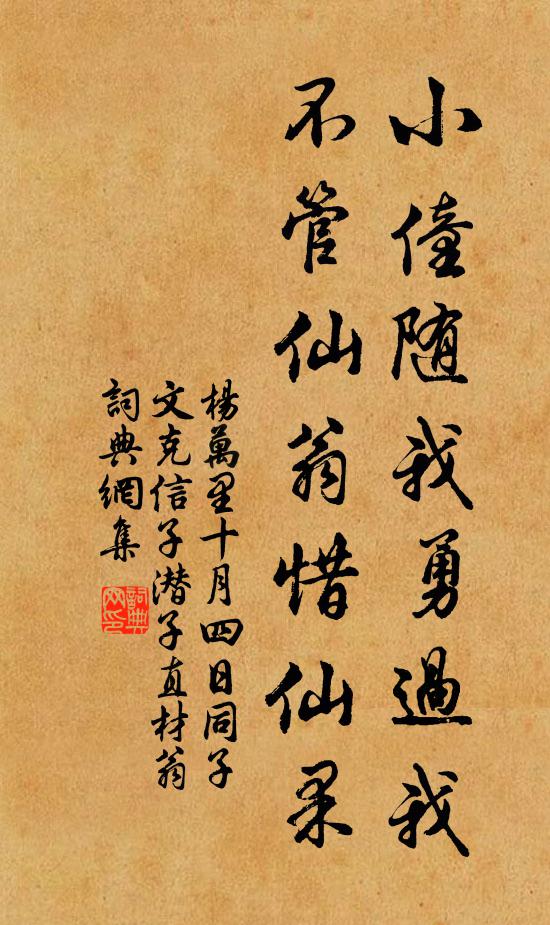 小僮随我勇過我
不管仙翁惜仙果
楊萬里十月四日同子
文克信子潜子直材翁
詞典網集
詞典网印